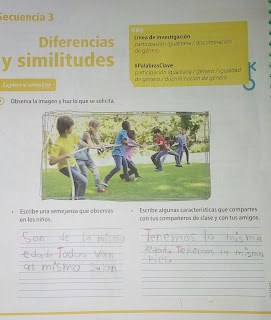 Secuencia 3
Diferencias
y similitudes
Línea de investigación
participación igualitaria / discriminación
de género
#PalabrasClave
participación igualitaria / género / igualdad
de género / discriminación de género
Observa la imagen y haz lo que se solicita.
• Escribe una semejanza que observas
en los niños.
Son de la misma
edad Todos Van
al mismo salon
• Escribe algunas características que compartes
con tus compañeros de clase y con tus amigos.
Tenemos la misma
edad Tenemos la misma
piel